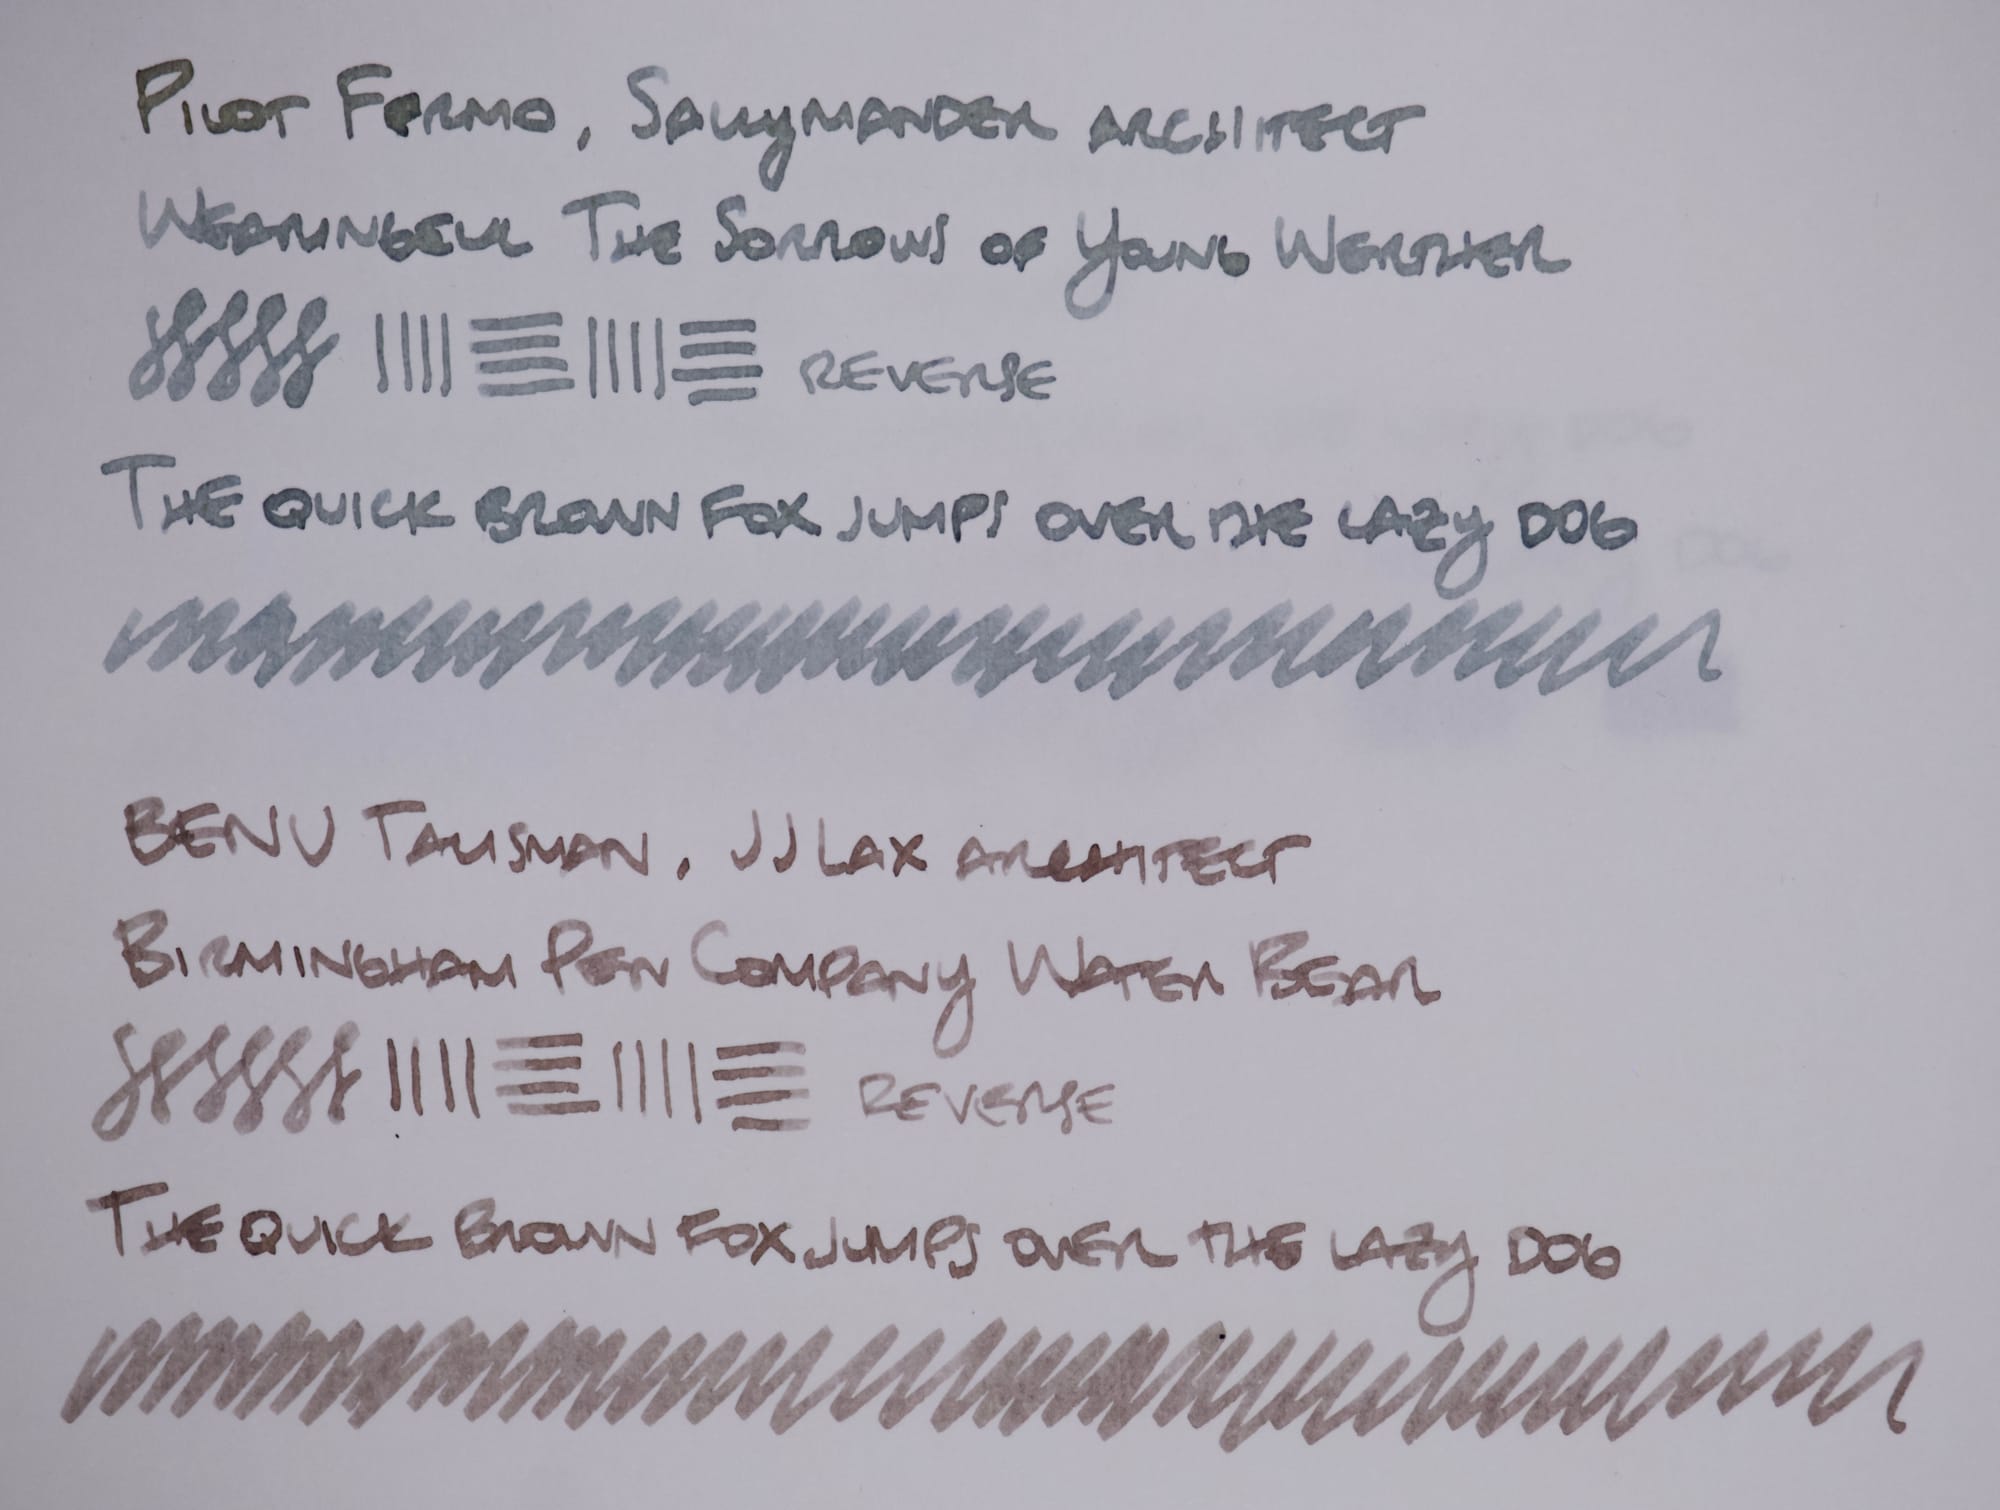 Pilot Fermo, Sallymander architect
Wearingeul The Sorrows of Young Werther
REVERSE
The quick brown fox jumps over the lazy dog
BENU Talisman, JJ Lax architect
Birmingham Pen Company Water Bear
REVERSE
The quick brown fox jumps over the lazy dog